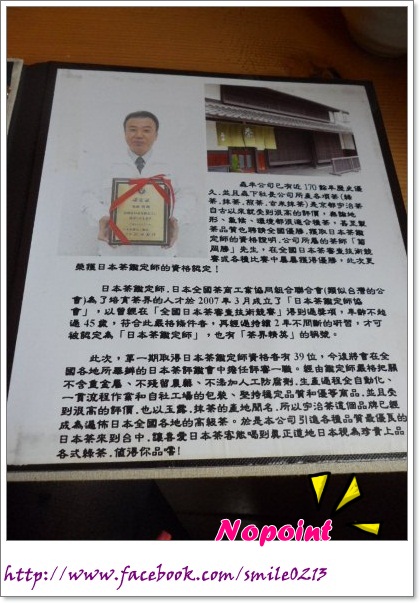 森半公司已有近170餘年歷史優
久,並且旗下社長公司所產各項茶(綠
茶,抹茶,煎茶,古來抹茶)是京都宇治茶
自古以來就受到很高的評價,無論地
形、氣候、環境都很適合種茶,甚至製
茶品質也聘請全國優勝,獲取日本茶鑑
定師的資格證明,公司所屬的茶師「
」先生,在全國日本茶審查技術競
賽或各種比賽中屢屢獲得優勝,此次更
榮獲日本茶鑑定師的資格認定!
日本茶鑑定師.日本.全國茶商工業協同組合聯合會(類似台灣的公
會)為了培育茶界的人才於2007年3月成立了「日本茶鑑定師協
會」,以曾經在「全國日本茶審查技術競賽」得到過獎項,年齡不超
過45歲,符合此嚴格條件者,再經過持續2年不間斷的研習,才可
被認定為「日本茶鑑定師」,也有「茶界精英」的稱號。
此次,第一期取得日本茶鑑定師資格者有39位,今後將會在全
國各地所舉辦的日本茶評鑑會中擔任評審一職。經由鑑定師嚴格把關
不含重金屬、不殘留農藥、不添加人工防腐劑,生產過程全自動化、
一貫流程作業和自社工場的包裝、堅持穩定品質和優等商品,並且受
到很高的評價,也以玉露,抹茶的產地聞名,所以宇治茶這個品牌已經
成為遍佈日本全國各地的高級茶。於是本公司引進各種品質最優良的
日本茶來到台中,讓喜愛日本茶客能喝到真正道地日本視為珍貴上品
各式綠茶,值得你品嚐!
Nopoint
http://www.facebook.com/smile0213